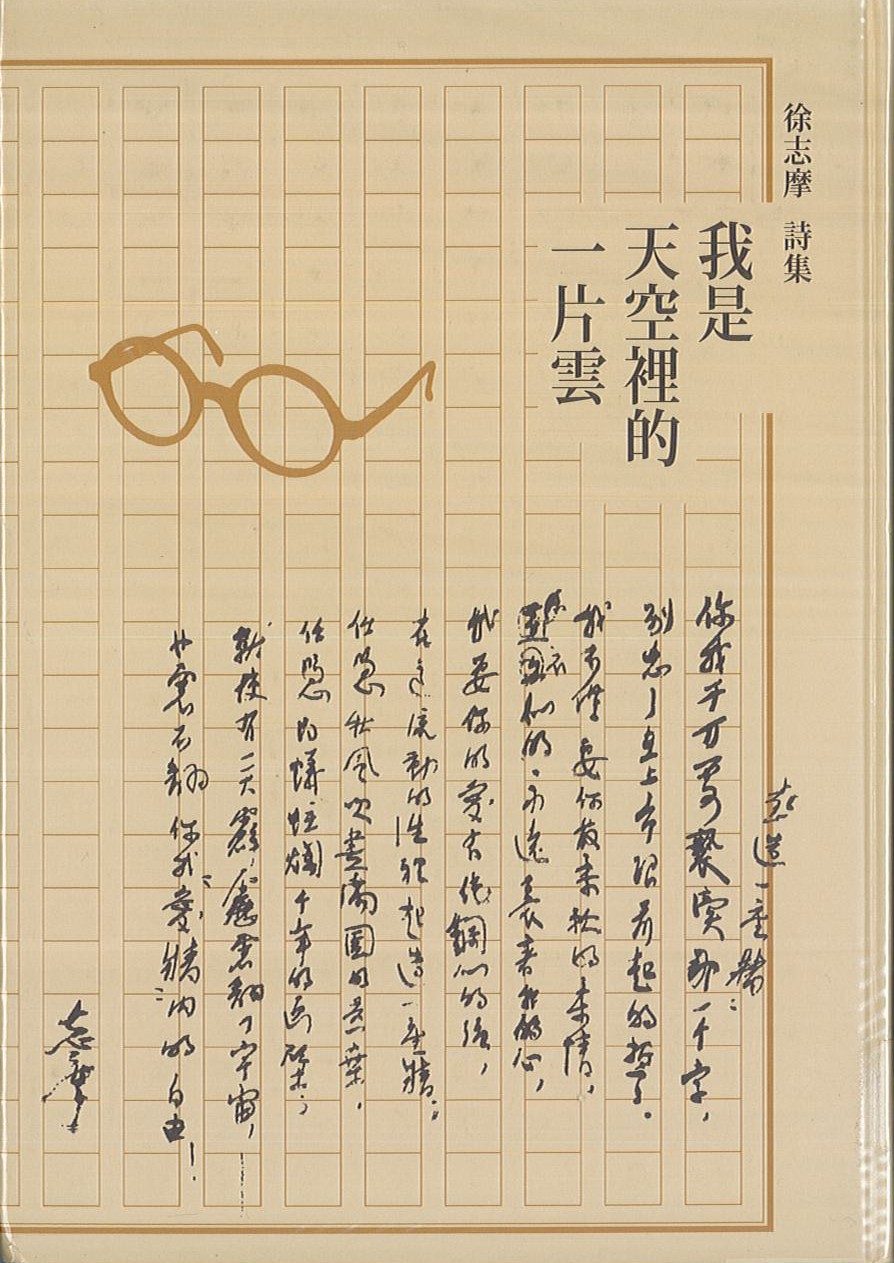 徐志摩 詩集
我是
天空裡的
一片雲
起造一座牆
你我千万不可褻瀆那一个字，
別忘了在上帝跟前起的誓。
我不僅要你最柔軟的柔情，
蕉衣似的，永遠裹着我的心，
我要你的愛有純鋼似的強，
在這流動的生裡起造一座牆；
任憑秋風吹盡滿園的黃葉，
任憑白蟻蛀爛千年的画壁；
就使有一天霹靂震翻了宇宙，
也震不翻你我“愛牆”內的自由！
志摩